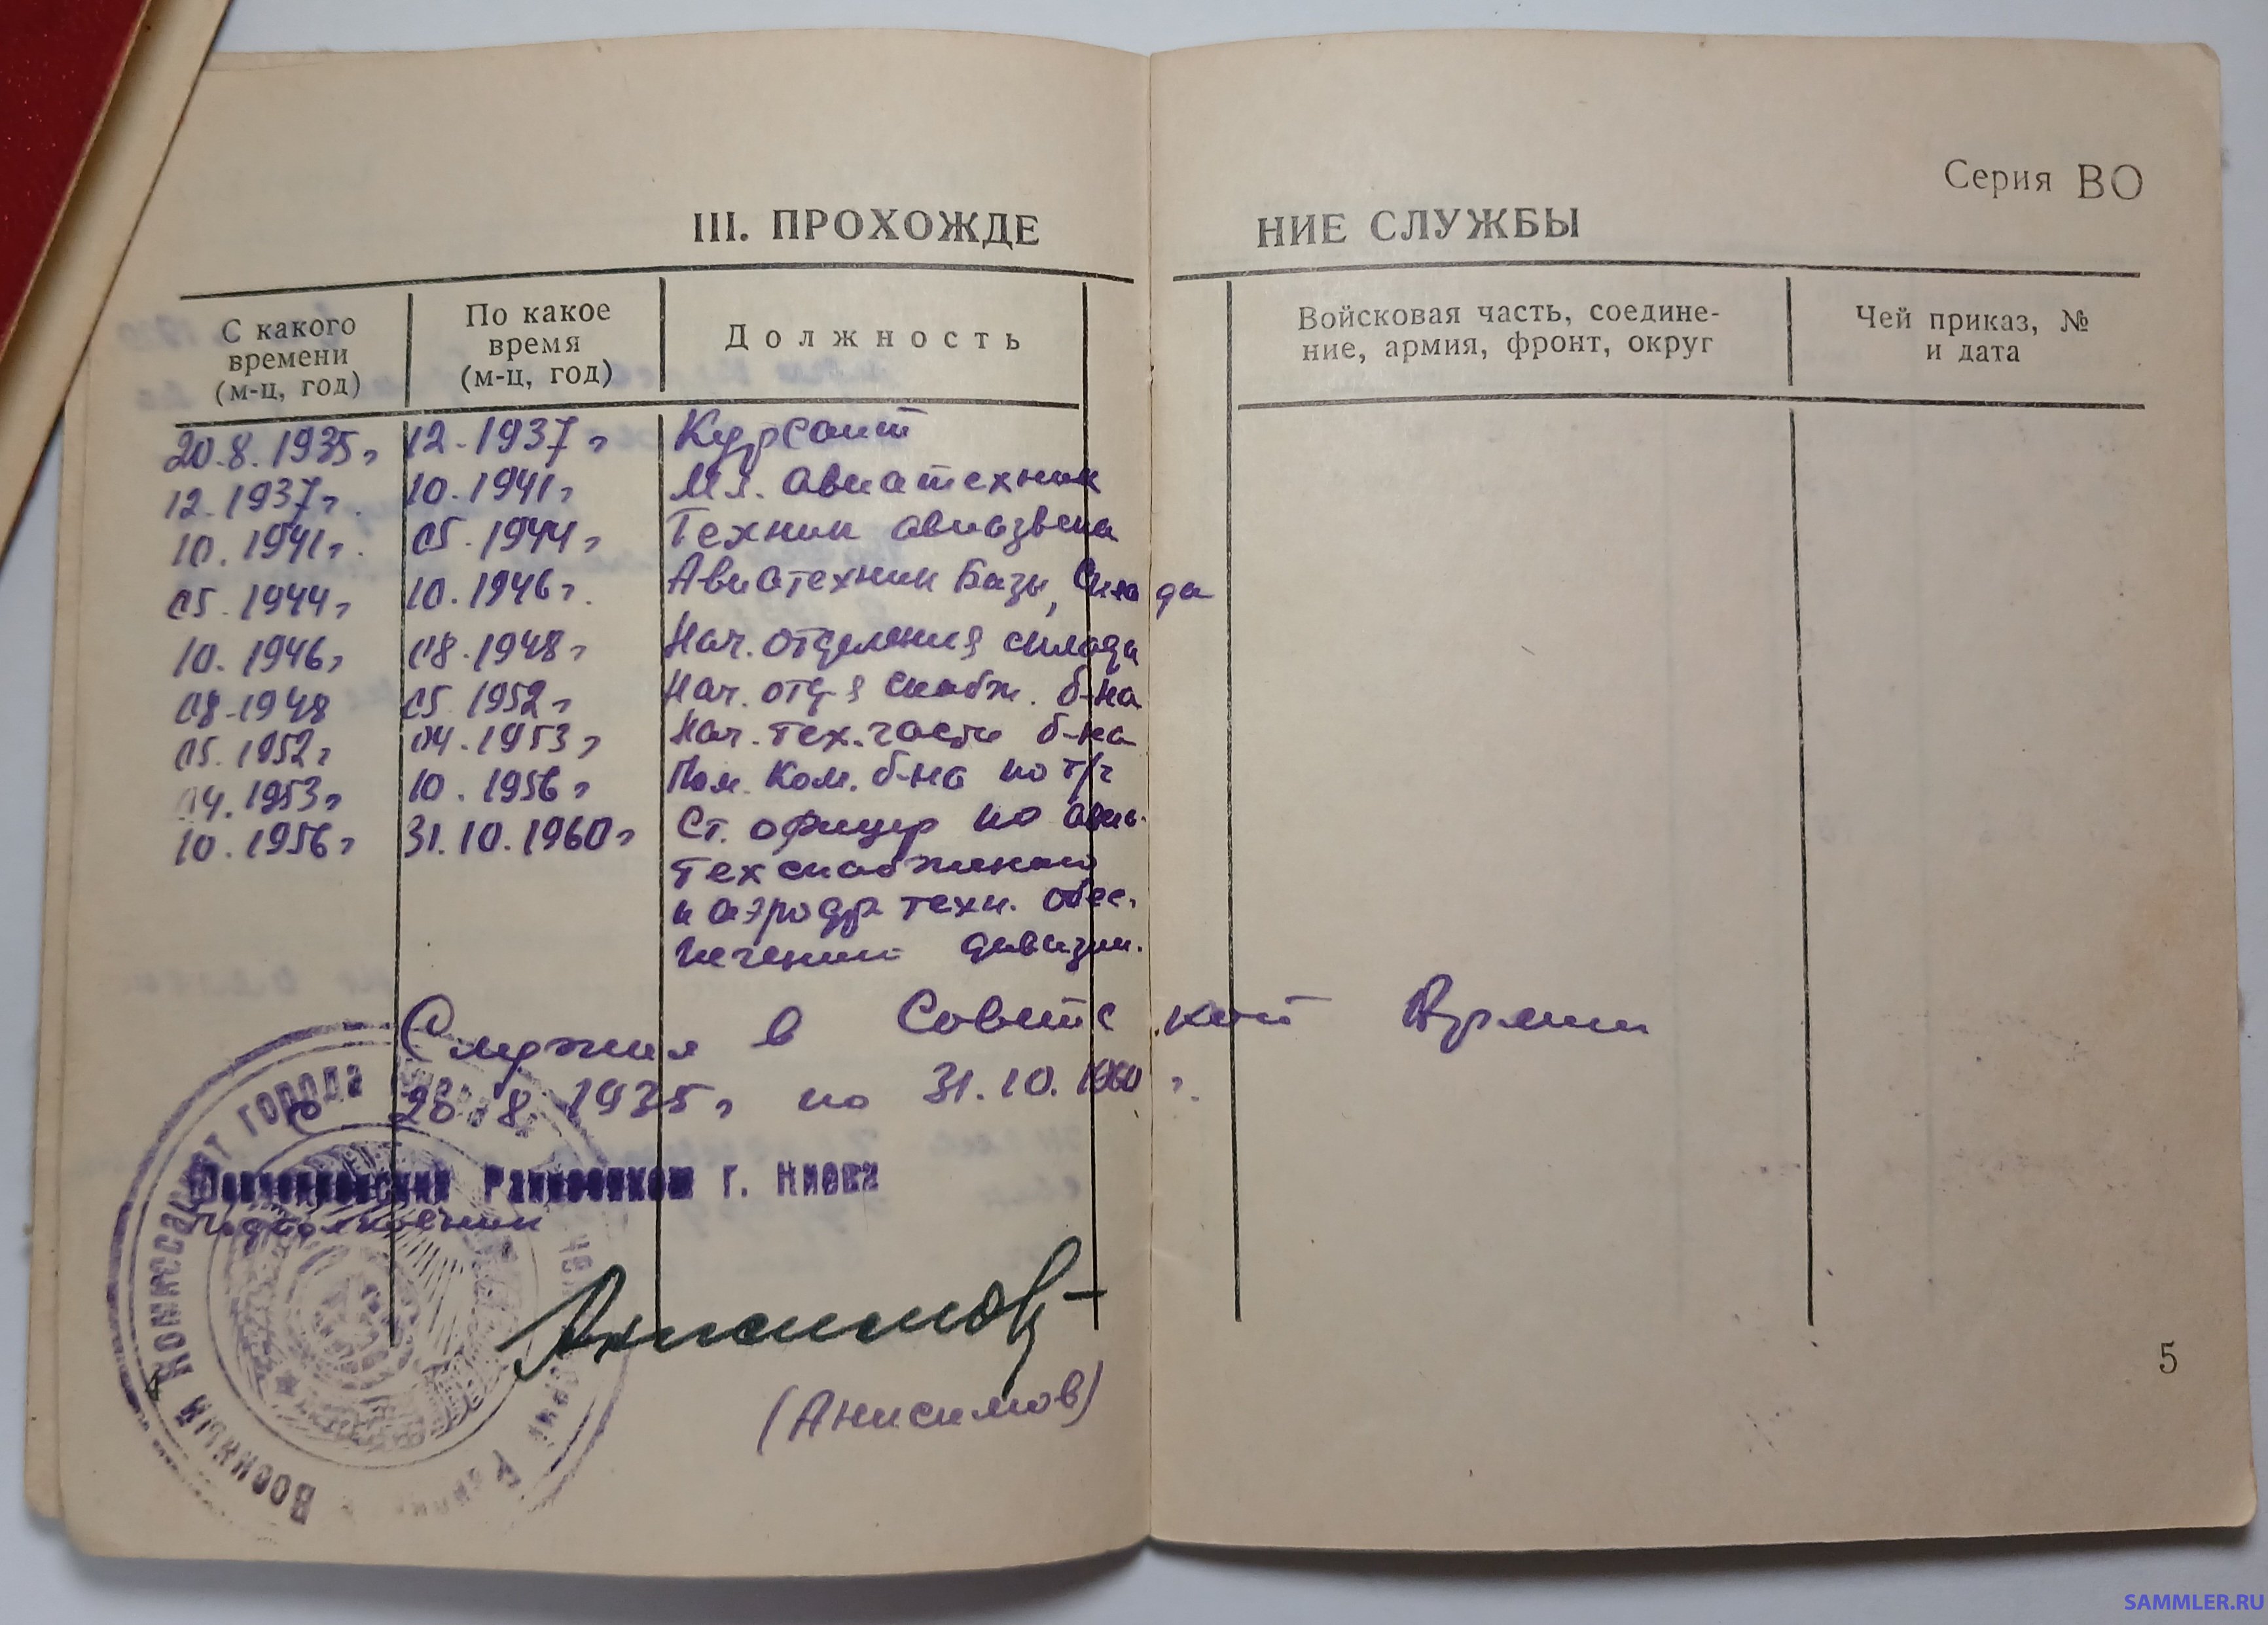 Серия ВО
III. ПРОХОЖДЕНИЕ СЛУЖБЫ
С какого времени (м-ц, год) По какое время (м-ц, год) Должность Войсковая часть, соединение, армия, фронт, округ Чей приказ, № и дата
20.8.1935г 12.1937г Курсант
12.1937г. 10.1941г Мл. авиатехник
10.1941г. 05.1944г Техник авиазвена
05.1944г 10.1946г. Авиатехник Базы, склада
10.1946г 08.1948г Нач. отделения склада
08.1948 05.1952г Нач. отд-я снабж. б-на
05.1952г 04.1953г Нач. тех. части б-на
04.1953г 10.1956г Пом. Ком. б-на по т/ч
10.1956г 31.10.1960г Ст. офицер по авиа-
техснабжению
и аэродр техн. обес-
печению дивизии.
Служил в Советской Армии
с 20.8.1935г по 31.10.1960г.
Шевченковский Райвоенком г. Киева
Подполковник
Анисимов
(Анисимов)
Военный Комиссариат города
4
5
SAMMLER.RU